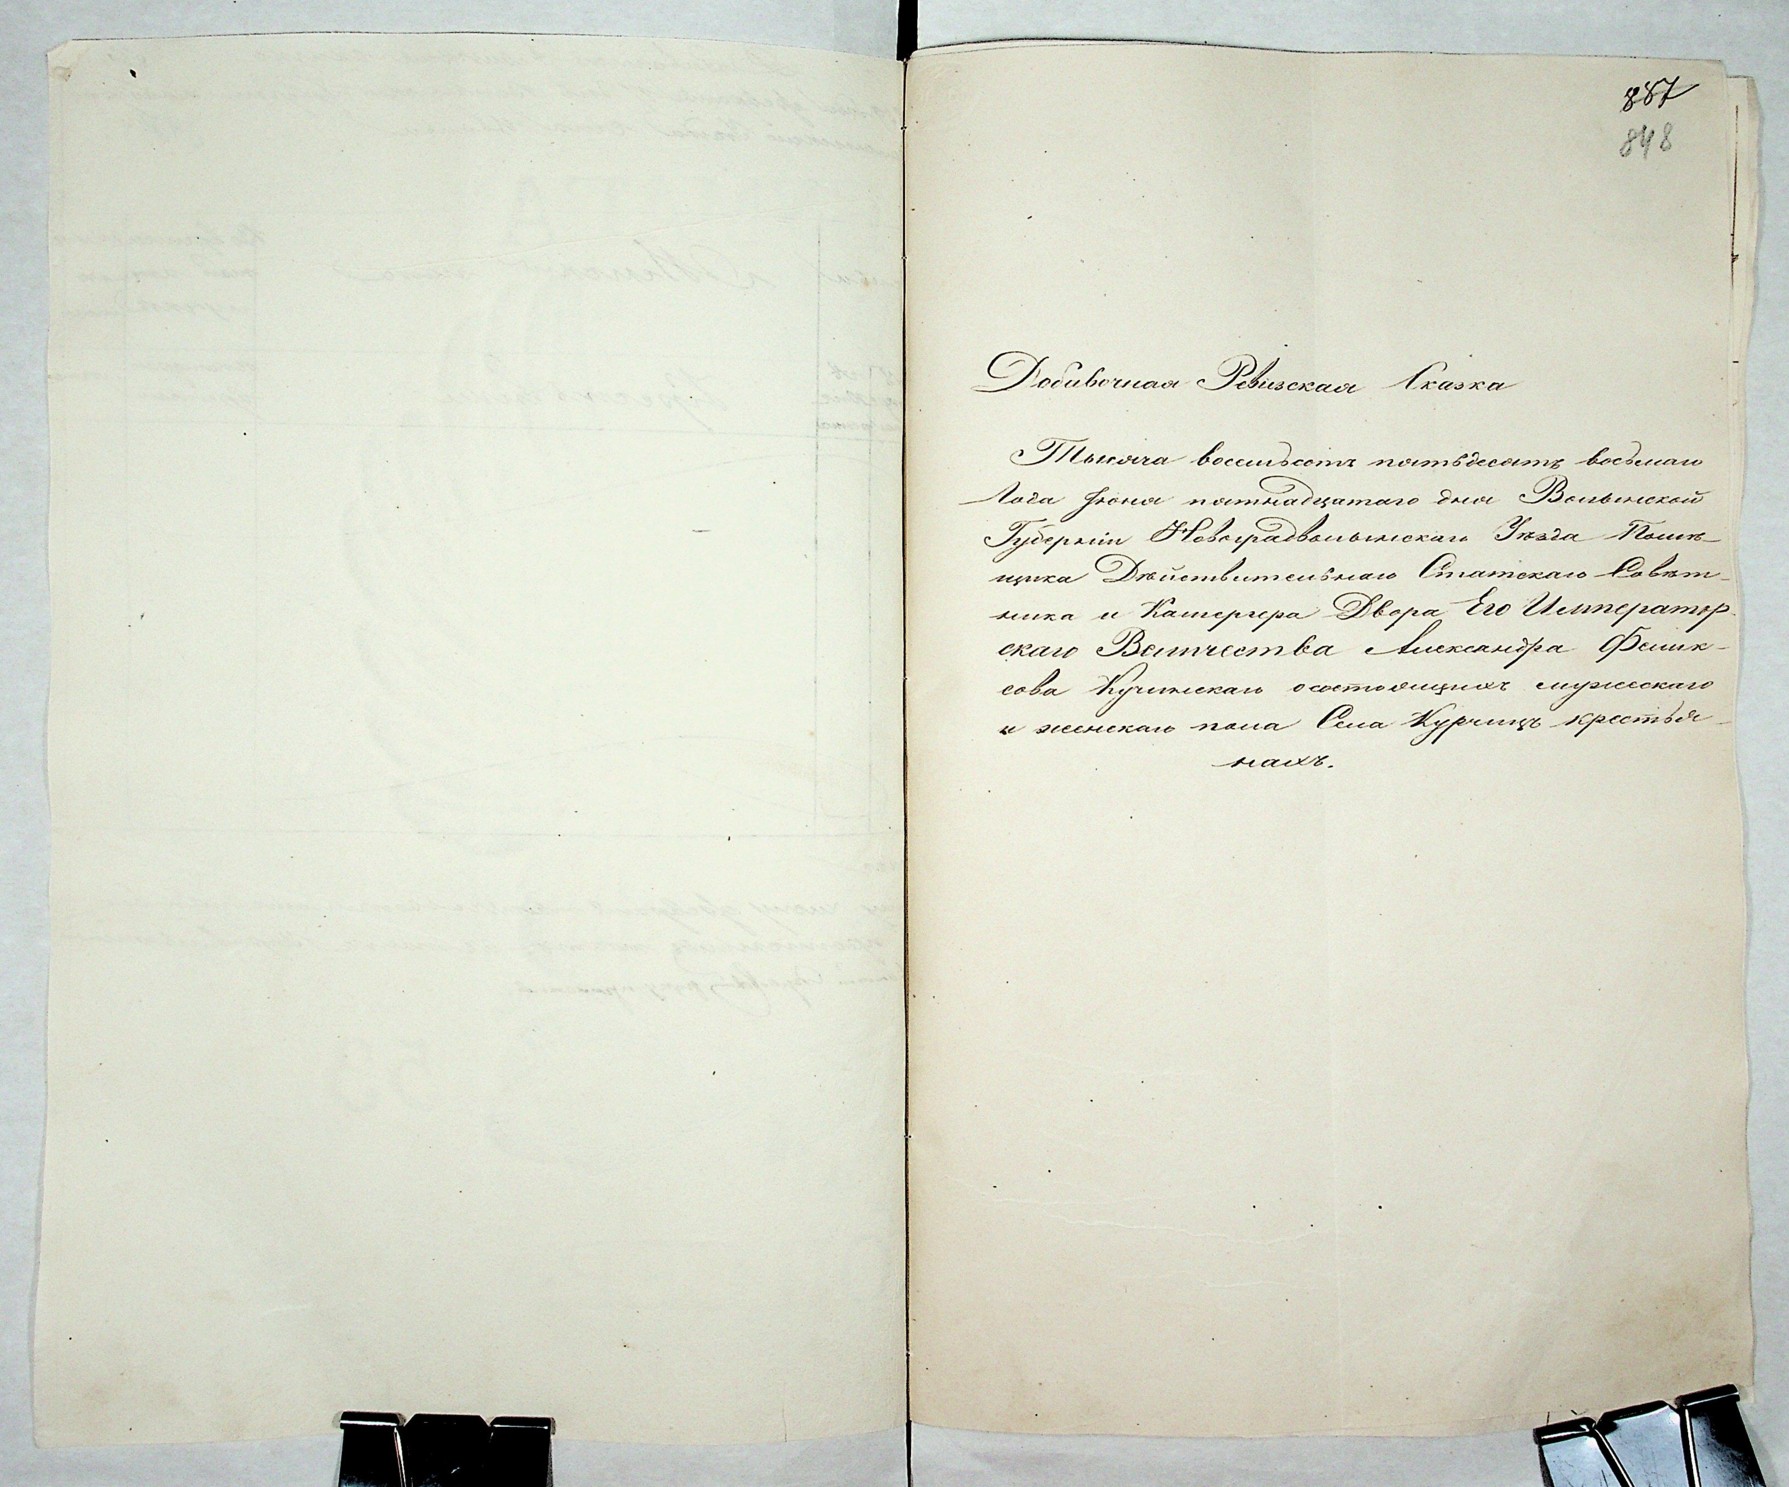 887
848
Добавочная Ревизская Сказка
Тысяча восемьсотъ пятьдесятъ восьмаго
Года Іюня пятнадцатаго дня Волынской
Губерніи Новоградволынскаго Уѣзда Помѣ-
щика Дѣйствительнаго Статскаго Совѣт-
ника и Камергера Двора Его Император-
скаго Величества Александра Фелик-
сова Кучинскаго о состоящихъ мужескаго
и женскаго пола Села Курчицъ крестья-
нахъ.